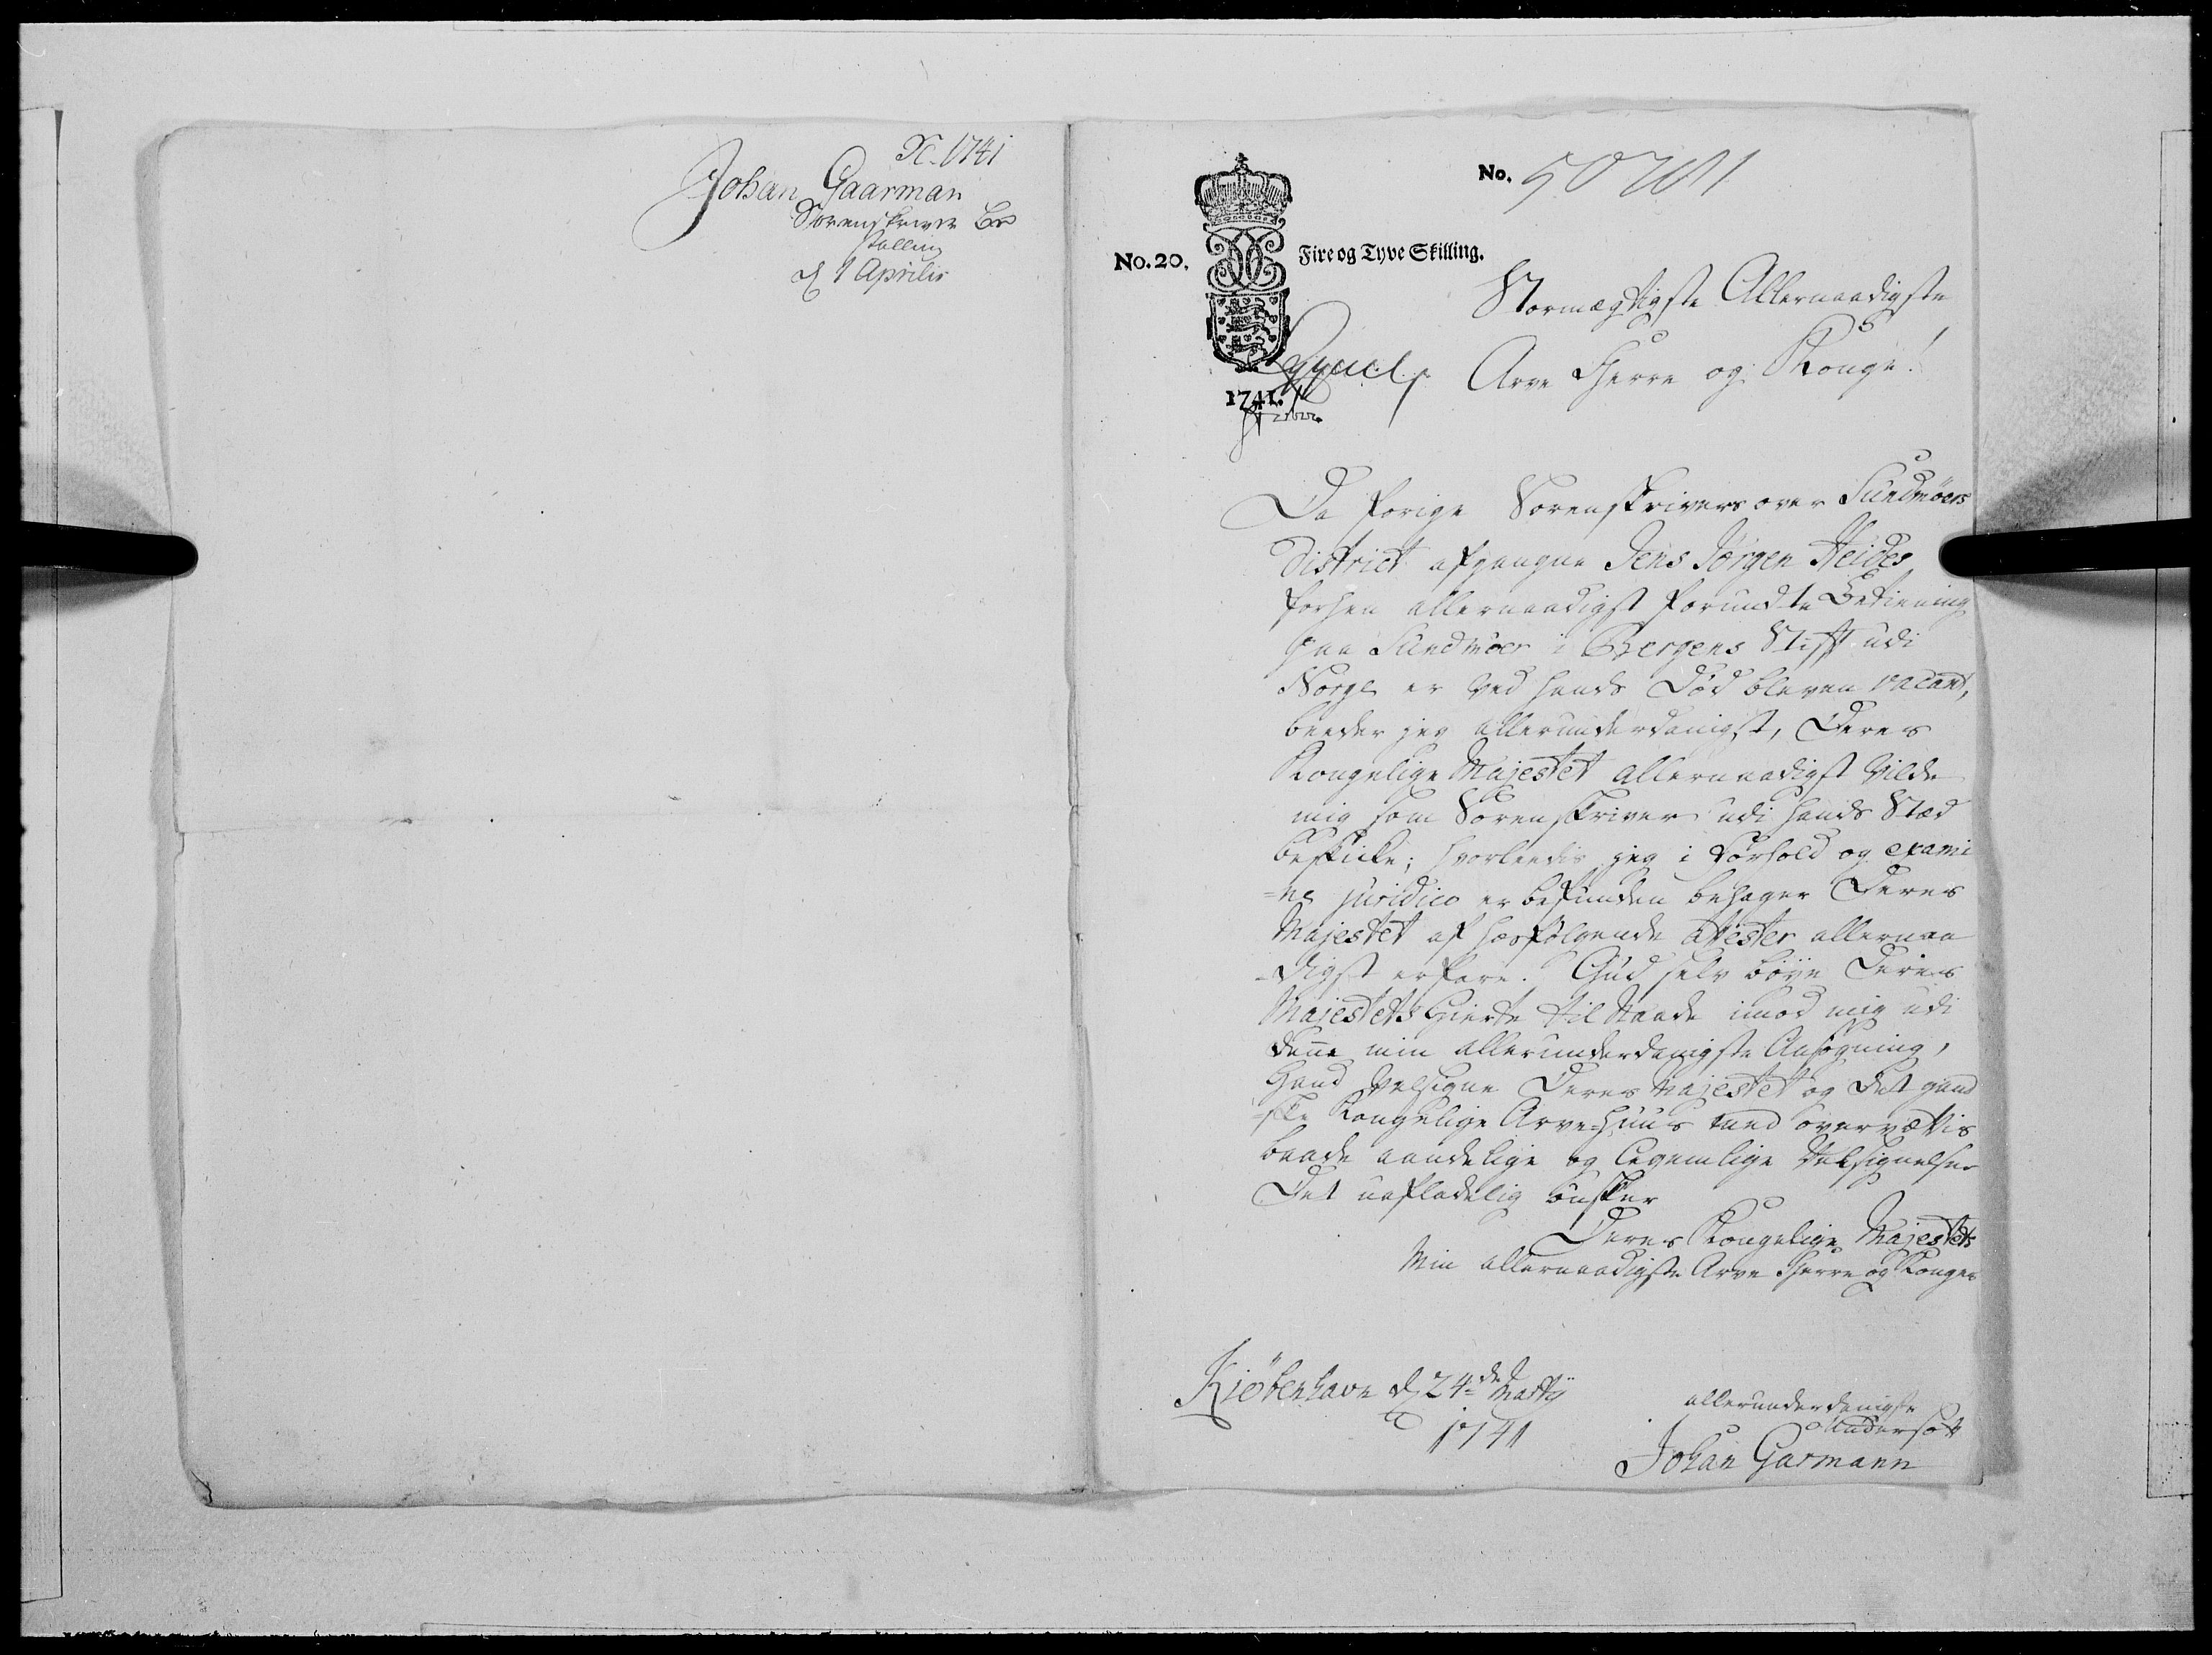 Sc. 1741
Johan Gaarman
Sorenskriver Be
stalling
d. 1 Aprilis
No. 50701
No. 20. Fire og Tyve Skilling.
1741.
Stormægtigste Allernaadigste
Arve Herre og Konge!
Da forige Sorenskrivers over Sundmöers
District afgangne Jens Jörgen Heides
forhen allernaadigst forundte Betiening
paa Sundmöer i Bergens Stift udi
Norge er ved hands Död bleven vacant,
beeder jeg allerunderdanigst, Deres
Kongelige Majestet allernaadigst vilde
mig som Sorenskriver udi hands Stæd
beskicke; hvorleedis jeg i Forhold og exami
=ne juridico er befunden behager Deres
Majestet af hosfölgende atester allernaa
=digst erfare. Gud selv böye Deres
Majestets Hierte til Naade imod mig udi
denne min allerunderdanigste Ansögning,
Hand velsigne Deres Majestet og det gand
=ske Kongelige Arve-Huus med overvættis
baade aandelige og legemlige Velsignelser
Det uafladelig önsker
Deres Kongelige Majestets
Min allernaadigste Arve Herre og Konges
Kiöbenhavn d. 24de Martij
1741
allerunderdanigste
Undersaat
Johan Garmann